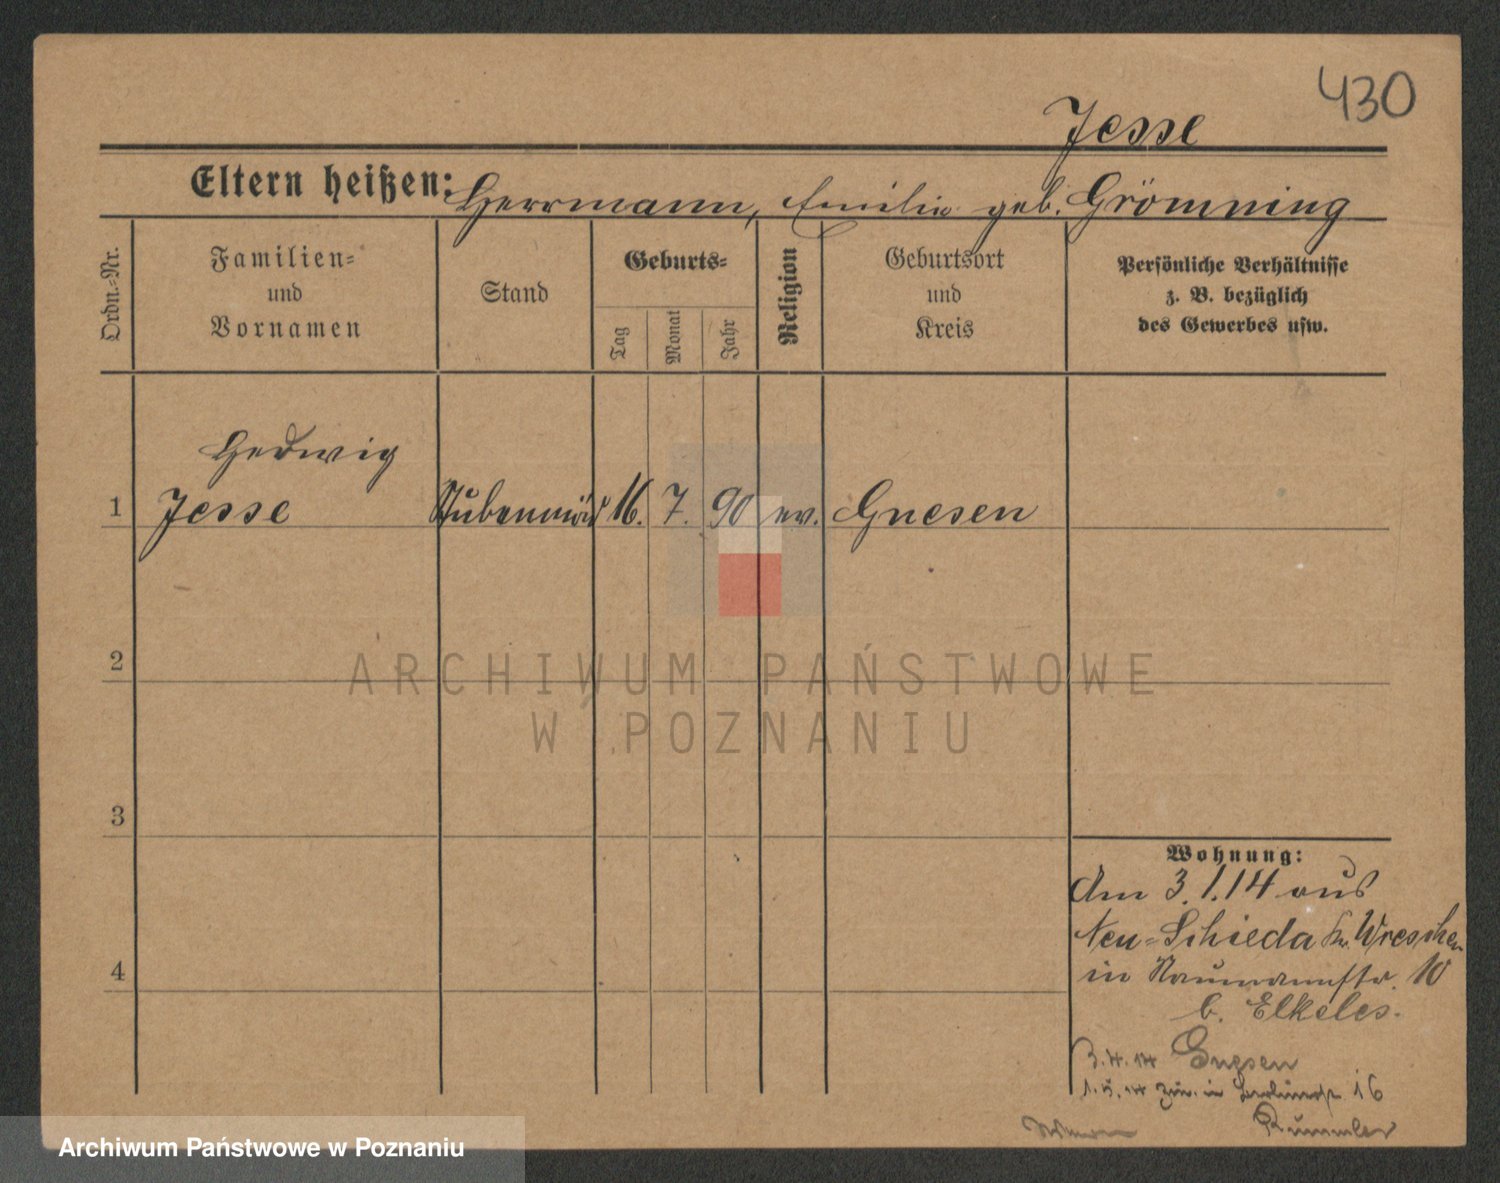 430
Jesse
Eltern heißen: Herrmann, Emilie geb. Grömning
Ordn.-Nr.
Familien-
und
Vornamen
Stand
Geburts-
Tag
Monat
Jahr
Religion
Geburtsort
und
Kreis
Persönliche Verhältnisse
z. B. bezüglich
des Gewerbes usw.
Hedwig
1 Jesse Stubenmäd 16. 7. 90 ev. Gnesen
2
3
4
Wohnung:
Am 3.1.14 aus
Neu-Schieda Kr. Wreschen
in Naumannstr. 10
b. Elkeles.
3.4.14 Gnesen
1.5.14 zur. in 16
Rummler
ARCHIWUM PAŃSTWOWE
W POZNANIU
Archiwum Państwowe w Poznaniu